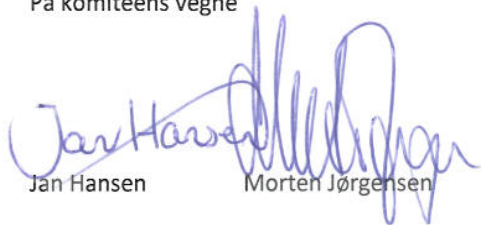 På komiteens vegne
Jan Hansen
Jan Hansen Morten Jørgensen